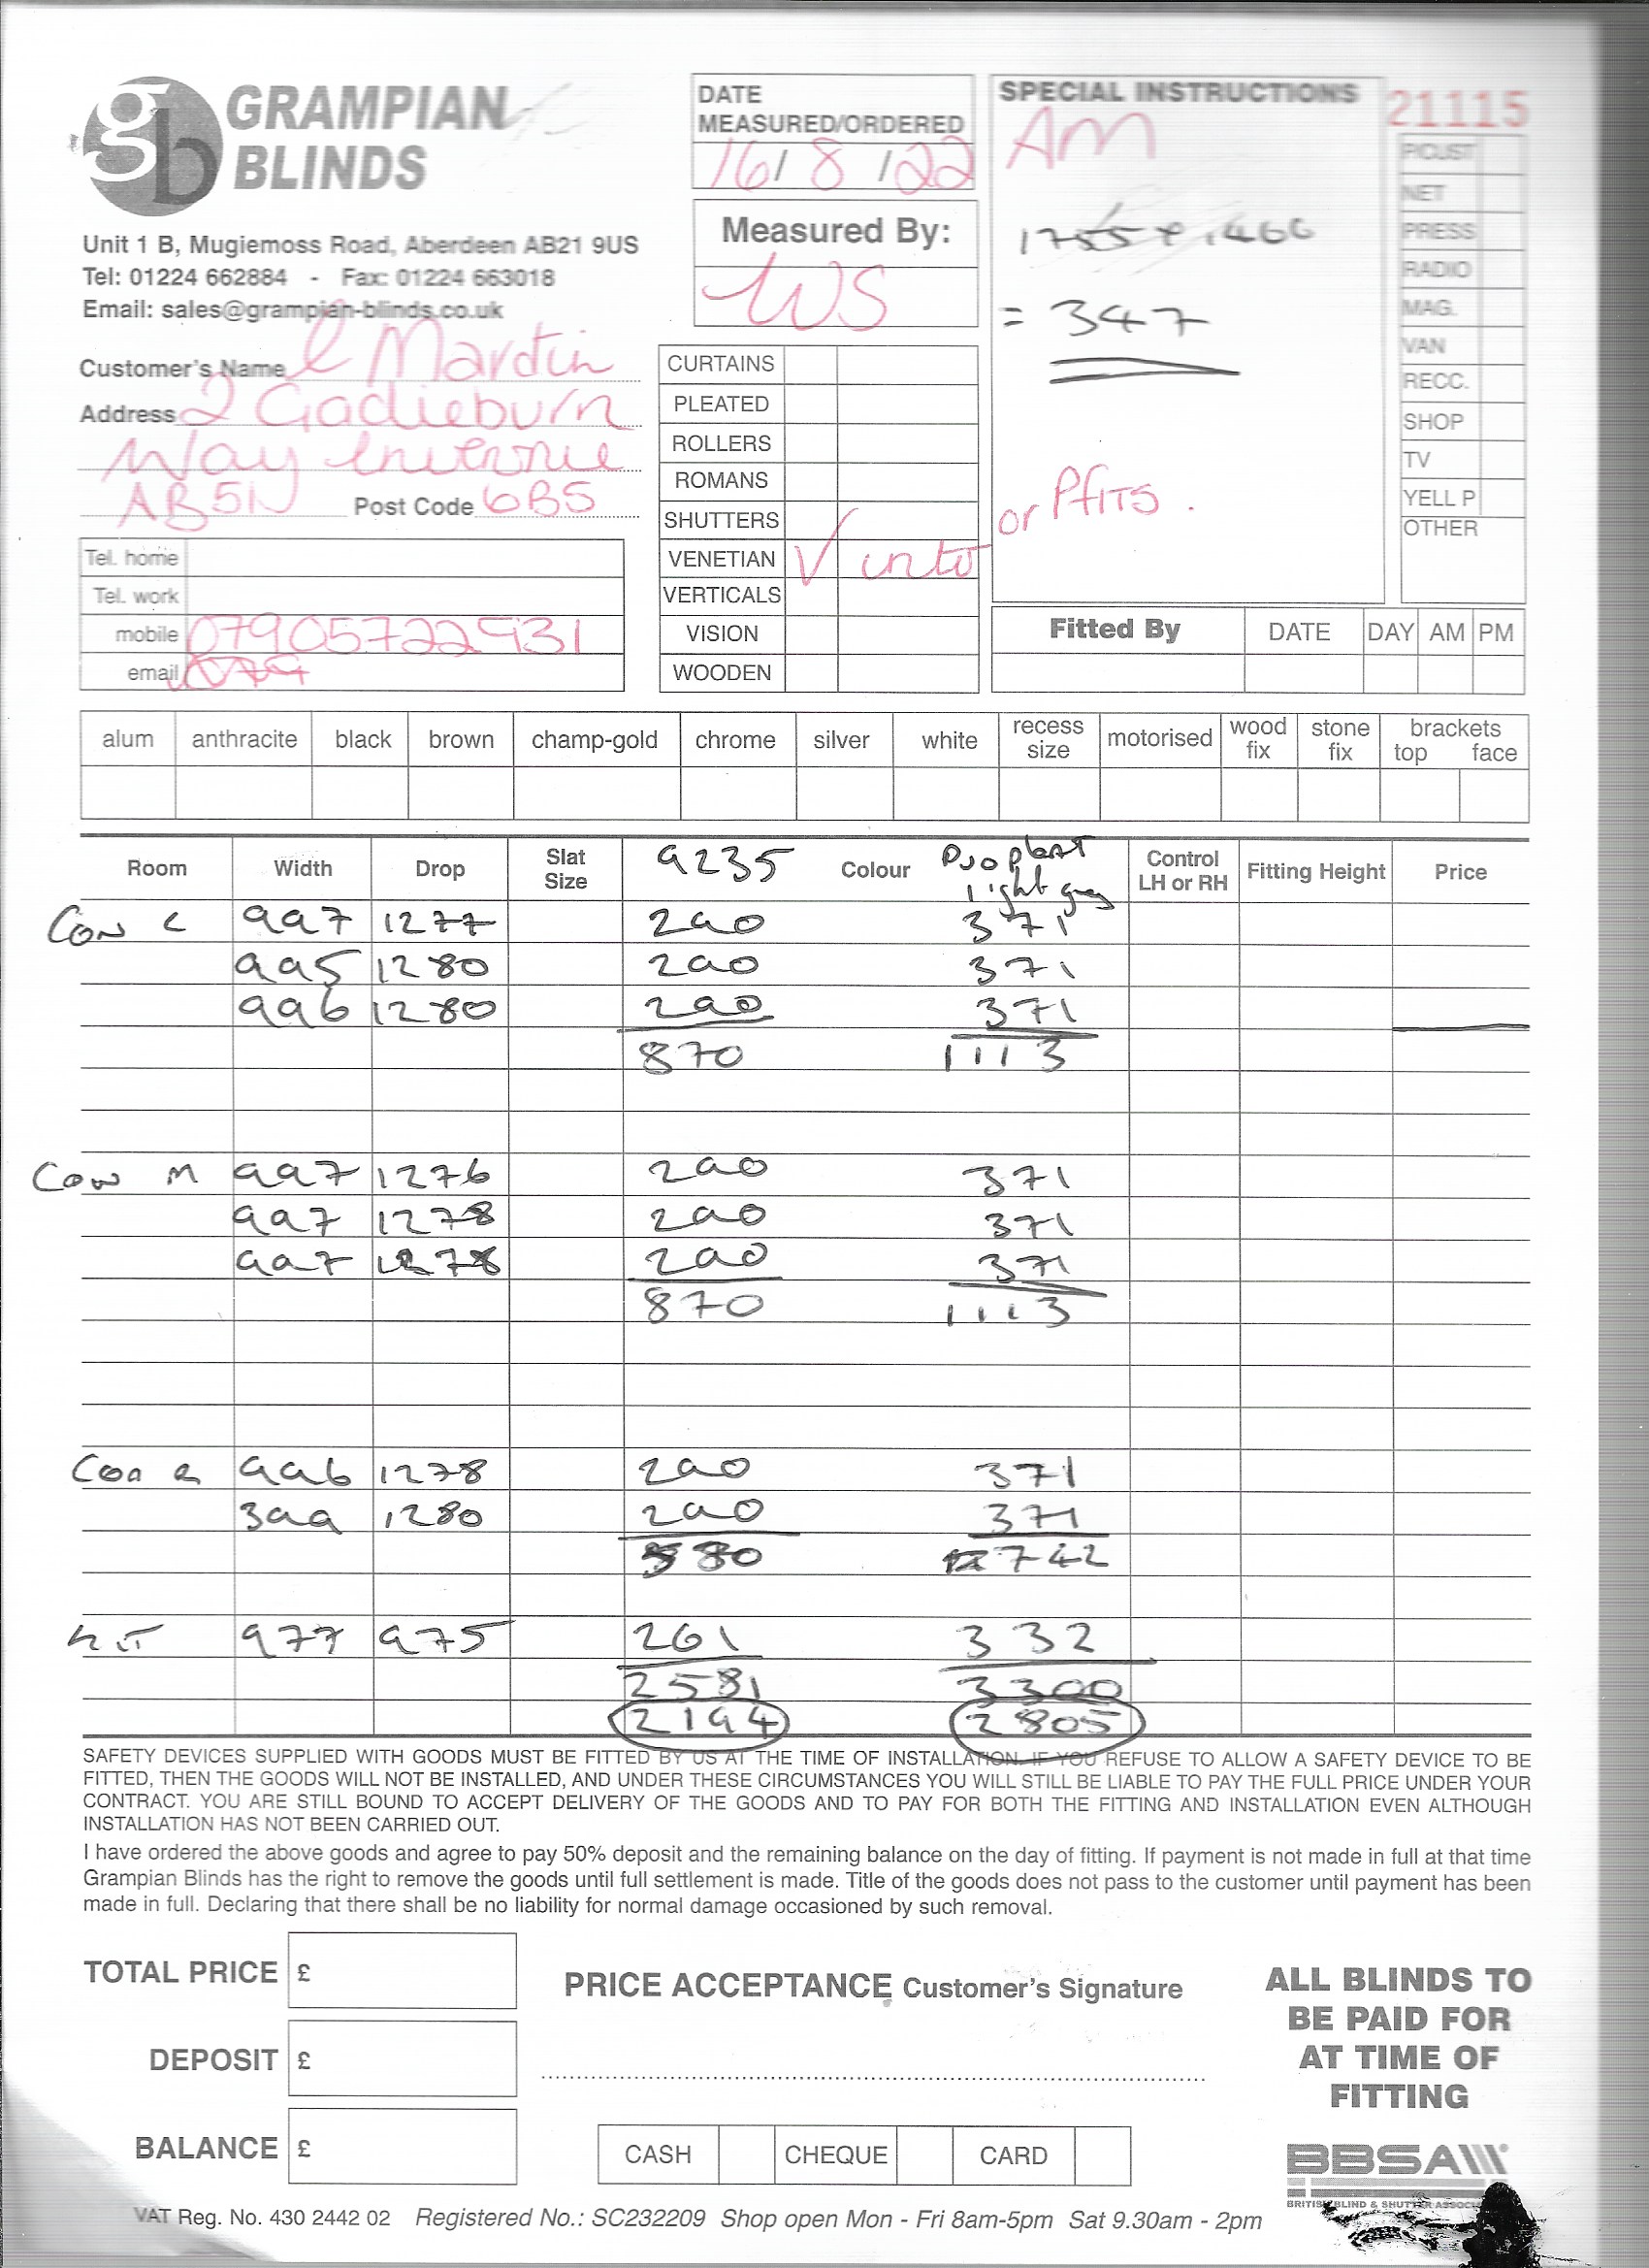 gb GRAMPIAN BLINDS
Unit 1 B, Mugiemoss Road, Aberdeen AB21 9US
Tel: 01224 662884 - Fax: 01224 663018
Email: sales@grampian-blinds.co.uk
Customer's Name Martin
Address 2 Gadieburn
Way Inverurie
AB51 Post Code 6BS
Tel. home
Tel. work
mobile 07905722931
email 079
DATE
MEASURED/ORDERED
16/ 8 /22
Measured By:
WS
CURTAINS
PLEATED
ROLLERS
ROMANS
SHUTTERS
VENETIAN ✓ intu or Pfits.
VERTICALS
VISION
WOODEN
SPECIAL INSTRUCTIONS
AM
= 347
21115
P/CUST
NET
PRESS
RADIO
MAG.
VAN
RECC.
SHOP
TV
YELL P
OTHER
Fitted By DATE DAY AM PM
alum anthracite black brown champ-gold chrome silver white recess size motorised wood fix stone fix brackets top face
Room Width Drop Slat Size 9235 Colour light grey Control LH or RH Fitting Height Price
Con L 997 1277 290 371
995 1280 290 371
996 1280 290 371
870 1113
Con M 997 1276 290 371
997 1278 290 371
997 1278 290 371
870 1113
Con R 996 1278 290 371
399 1280 290 371
580 742
KIT 977 975 261 332
2581 3300
2194 2805
SAFETY DEVICES SUPPLIED WITH GOODS MUST BE FITTED BY US AT THE TIME OF INSTALLATION. IF YOU REFUSE TO ALLOW A SAFETY DEVICE TO BE
FITTED, THEN THE GOODS WILL NOT BE INSTALLED, AND UNDER THESE CIRCUMSTANCES YOU WILL STILL BE LIABLE TO PAY THE FULL PRICE UNDER YOUR
CONTRACT. YOU ARE STILL BOUND TO ACCEPT DELIVERY OF THE GOODS AND TO PAY FOR BOTH THE FITTING AND INSTALLATION EVEN ALTHOUGH
INSTALLATION HAS NOT BEEN CARRIED OUT.
I have ordered the above goods and agree to pay 50% deposit and the remaining balance on the day of fitting. If payment is not made in full at that time
Grampian Blinds has the right to remove the goods until full settlement is made. Title of the goods does not pass to the customer until payment has been
made in full. Declaring that there shall be no liability for normal damage occasioned by such removal.
TOTAL PRICE £
DEPOSIT £
BALANCE £
PRICE ACCEPTANCE Customer's Signature
CASH CHEQUE CARD
ALL BLINDS TO
BE PAID FOR
AT TIME OF
FITTING
BBSA
BRITISH BLIND & SHUTTER
VAT Reg. No. 430 2442 02 Registered No.: SC232209 Shop open Mon - Fri 8am-5pm Sat 9.30am - 2pm